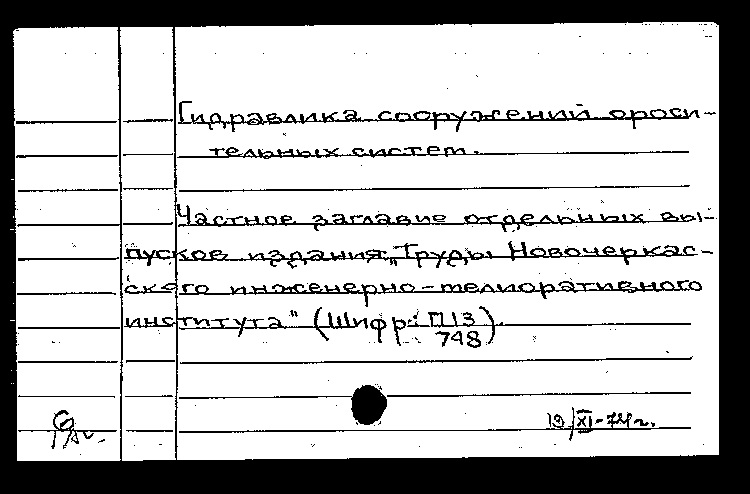 Гидравлика сооружений ороси-
тельных систем.
Частное заглавие отдельных вы-
пусков издания „Труды Новочеркас-
ского инженерно-мелиоративного
института" (Шифр: П13
748).
19/XI-74г.